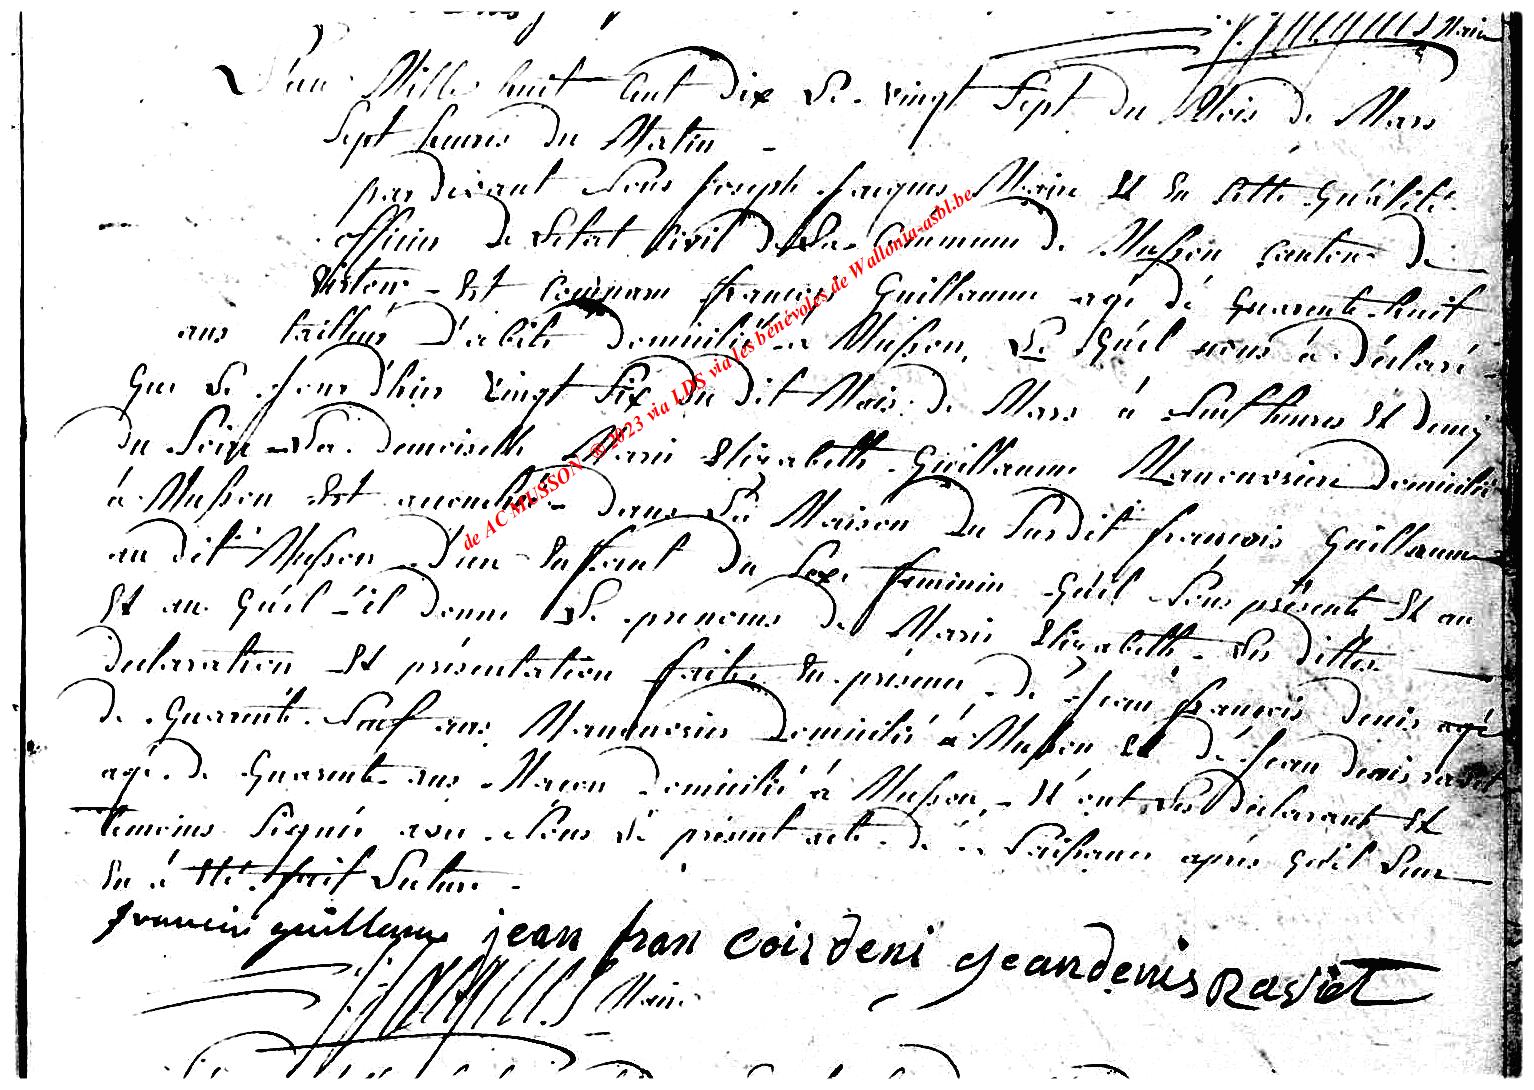 J. Jacques Maire
L'an Mille huit Cent dix Le vingt Sept du Mois de Mars
Sept heures du Matin -
pardevant Nous Joseph Jacques Maire Et En Cette Qualité
officier de L'etat Civil de La Commune de Musson Canton de
Virton - Est Comparu françois Guillaume agé de Quarente huit
ans tailleur d'abits domicilié a Musson, Le Quel nous à déclaré
Que Le Jourd'huy vingt Six du dit Mois de Mars à Neuf heures Et demy
du Soir La demoiselle Marie Elizabeth Guillaume Manouvriere domicilié
à Musson Est accouchée dans La Maison du Susdit françois Guillaume
au dit Musson d'un Enffant du Sexe feminin Qu'il Nous présente Et au
Et au Quel il donne Les prenoms de Marie Elizabeth - Les dittes
declaration Et présentation faites En présence de Jean françois denis agé
de Quarente Neuf ans Manouvrier Domicilié à Musson Et de Jean denis raviet
agé de Quarente ans Macon domicilié à Musson, Et ont Les déclarant Et
temoins Signée avec Nous Le présent acte de Naissance après Qu'il Leur
En à Eté fait Lecture -
francois guillaume jean fran cois deni Jean denis Raviet
J. Jacques Maire
de AC MUSSON © 2023 via LDS via les bénévoles de Wallonia-asbl.be